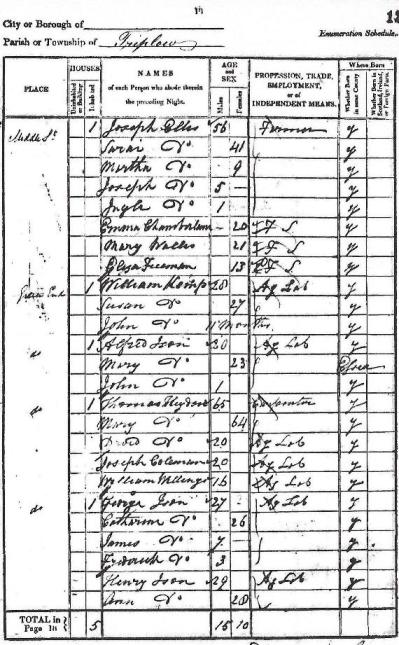 18
13
City or Borough of
Enumeration Schedule.
Parish or Township of Triplow
PLACE HOUSES Uninhabited or Building Inhabited NAMES of each Person who abode therein the preceding Night. AGE and SEX Males Females PROFESSION, TRADE, EMPLOYMENT, or of INDEPENDENT MEANS. Where Born Whether Born in same County Whether Born in Scotland, Ireland, or Foreign Parts.
Middle St 1 Joseph Ellis 56 Farmer y
Sarah Do 41 y
Martha Do 9 y
Joseph Do 5 y
Ingle Do 1 y
Emma Chamberlain 20 F S y
Mary Wallis 21 F S y
Eliza Freeman 13 F S y
Green End 1 William Kemp 28 Ag Lab y
Susan Do 27 y
John Do 11 Months y
do 1 Alfred Ison 30 Ag Lab y
Mary Do 23
John Do 1 y
do 1 Thomas Heydon 65 Carpenter y
Mary Do 64 y
David Do 20 Ag Lab y
Joseph Coleman 20 Ag Lab y
William 16 Ag Lab y
do 1 George Ison 27 Ag Lab y
Catharine Do 26 y
James Do 7 y
Frederick Do 3 y
Henry Ison 29 Ag Lab y
Ann Do 28 y
TOTAL in Page 18 5 15 10